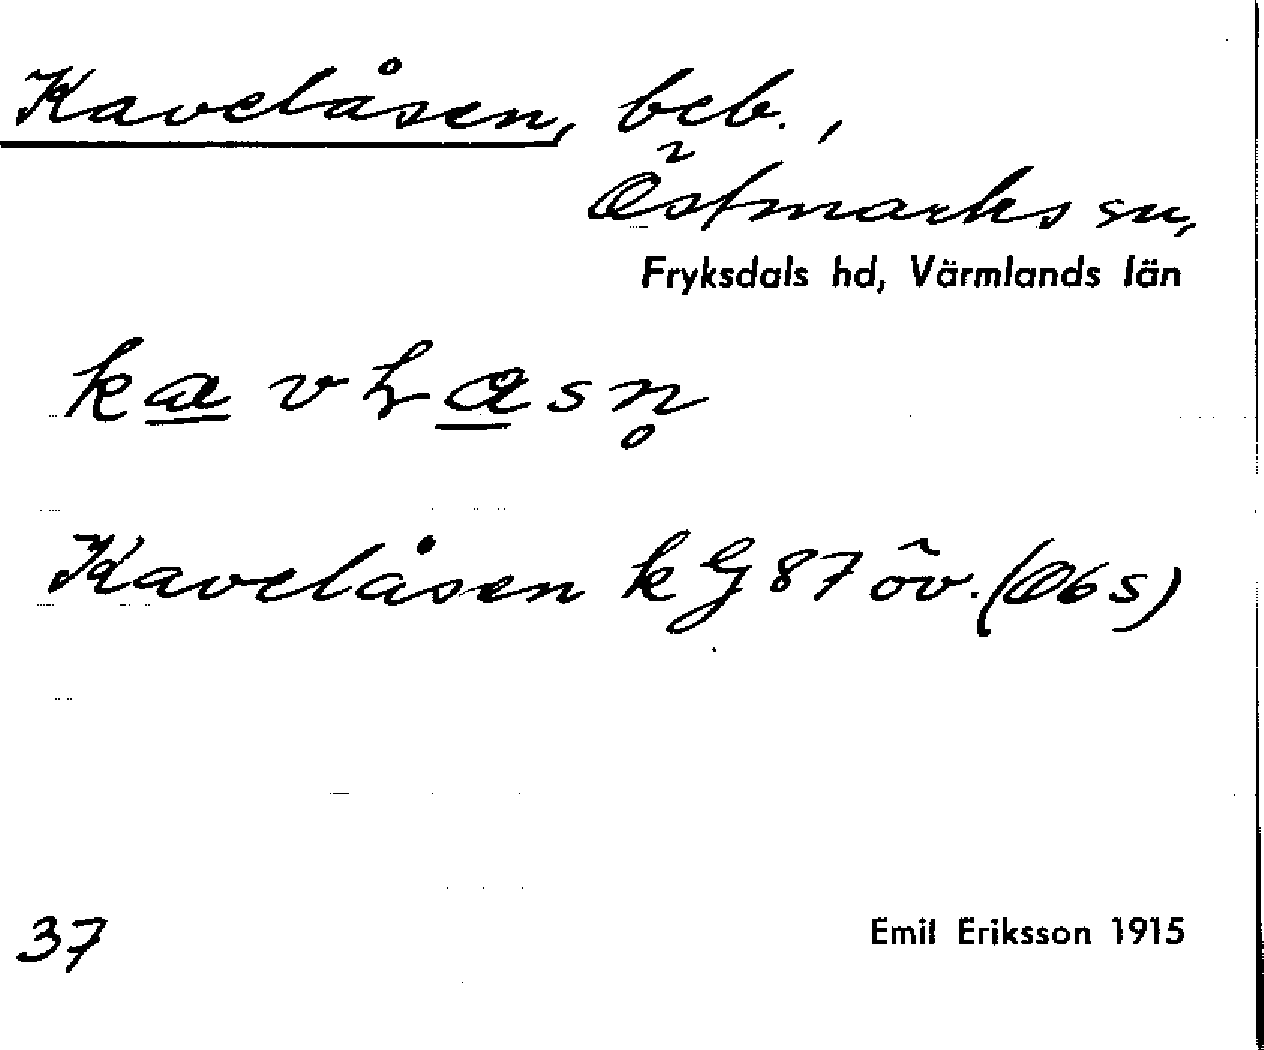 Kavelåsen, beb.,
Östmarks sn,
Fryksdals hd, Värmlands län
Kavelåsen k G 87 öv. (Obs)
37
Emil Eriksson 1915